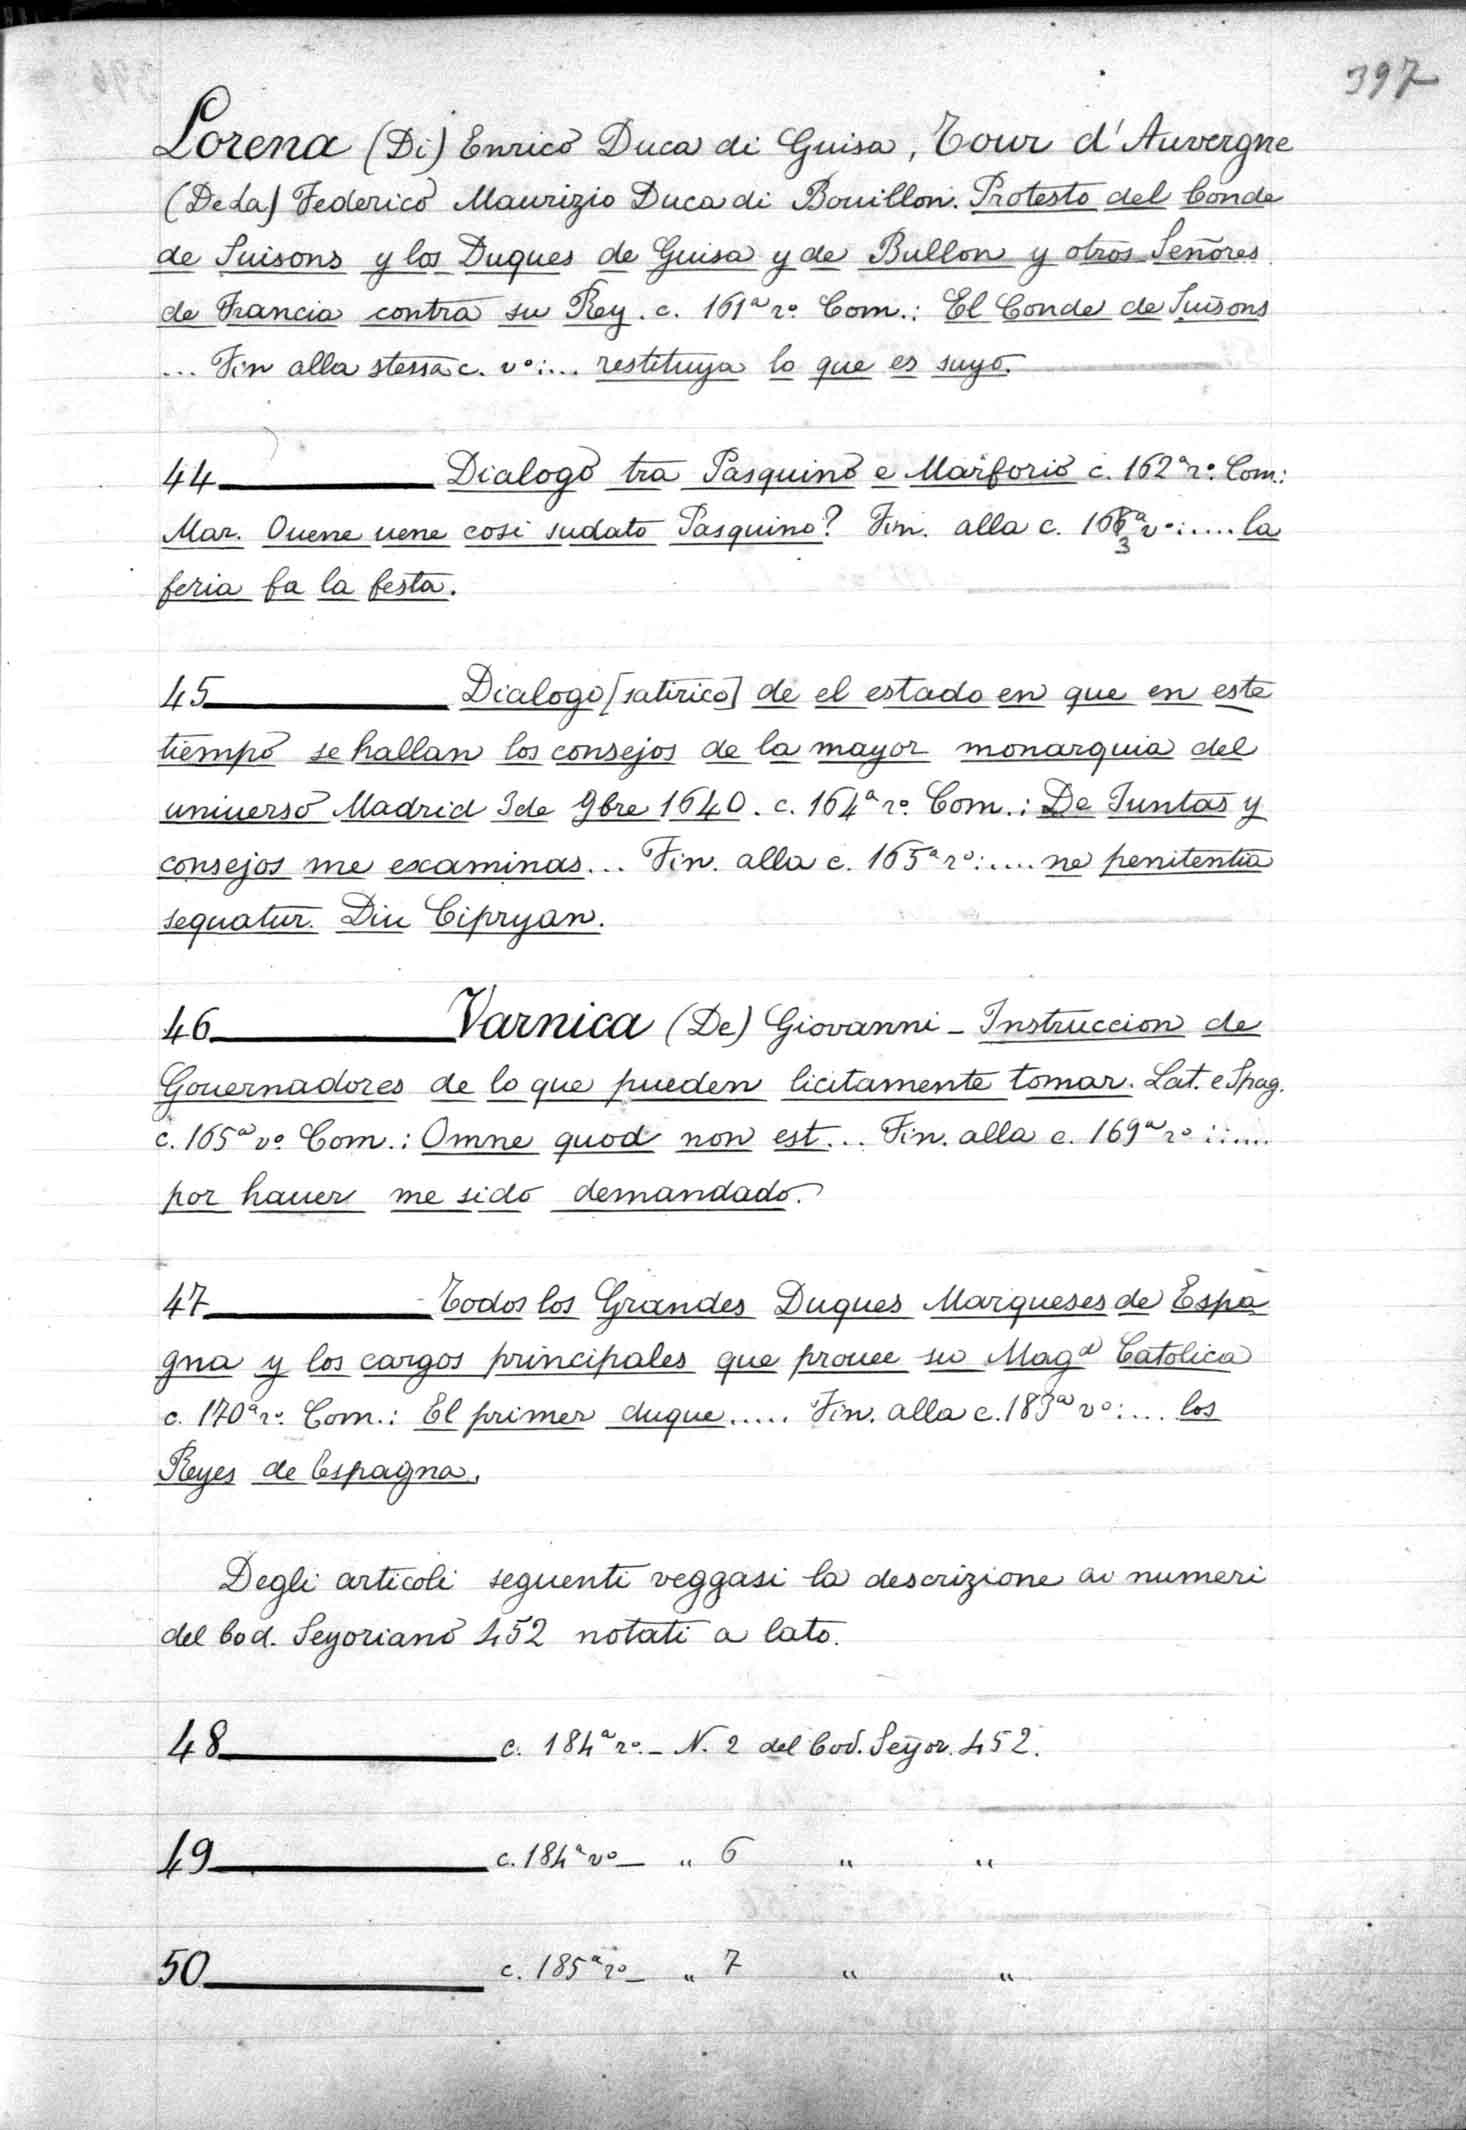 397
Lorena (Di) Enrico Duca di Guisa, Tour d'Auvergne
(De La) Federico Maurizio Duca di Bouillon. Protesto del Conde
de Suisons y los Duques de Guisa y de Bullon y otros Señores
de Francia contra su Rey. c. 161ª rº Com.: El Conde de Suisons
... Fin alla stessa c. vº:... restituya lo que es suyo.
44 Dialogo tra Pasquino e Marforio c. 162ª rº. Com:
Mar. Ouene uene cosi sudato Pasquino? Fin. alla c. 163ª vº:.... la
feria fa la festa.
45 Dialogo [satirico] de el estado en que en este
tiempo se hallan los consejos de la mayor monarquia del
uniuerso Madrid 3 de 9bre 1640. c. 164ª rº Com.: De Juntas y
consejos me examinas... Fin. alla c. 165ª rº:.... ne penitentia
sequatur. Diu Cipryan.
46 Varnica (De) Giovanni - Instruccion de
Gouernadores de lo que pueden licitamente tomar. Lat. e Spag.
c. 165ª vº Com.: Omne quod non est... Fin. alla c. 169ª rº::....
por hauer me sido demandado.
47 Todos los Grandes Duques Marqueses de Espa
gna y los cargos principales que prouee su Magd Catolica
c. 170ª rº. Com.: El primer duque..... Fin. alla c. 183ª vº:... los
Reyes de Espagna.
Degli articoli seguenti veggasi la descrizione ai numeri
del Cod. Seyoriano 452 notati a lato.
48 c. 184ª rº. - N. 2 del Cod. Seyor. 452.
49 c. 184ª vº - " 6 " "
50 c. 185ª rº - " 7 " "